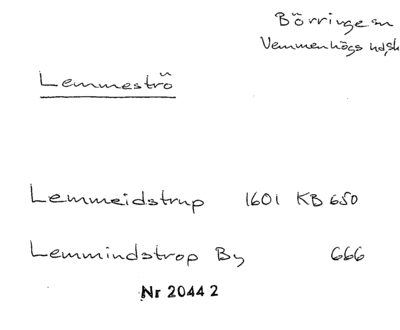 Börringe sn
Vemmenhögs hd, Sk
Lemmeströ
Lemmeidstrup 1601 KB 650
Lemmindstrop By 666
Nr 2044 2